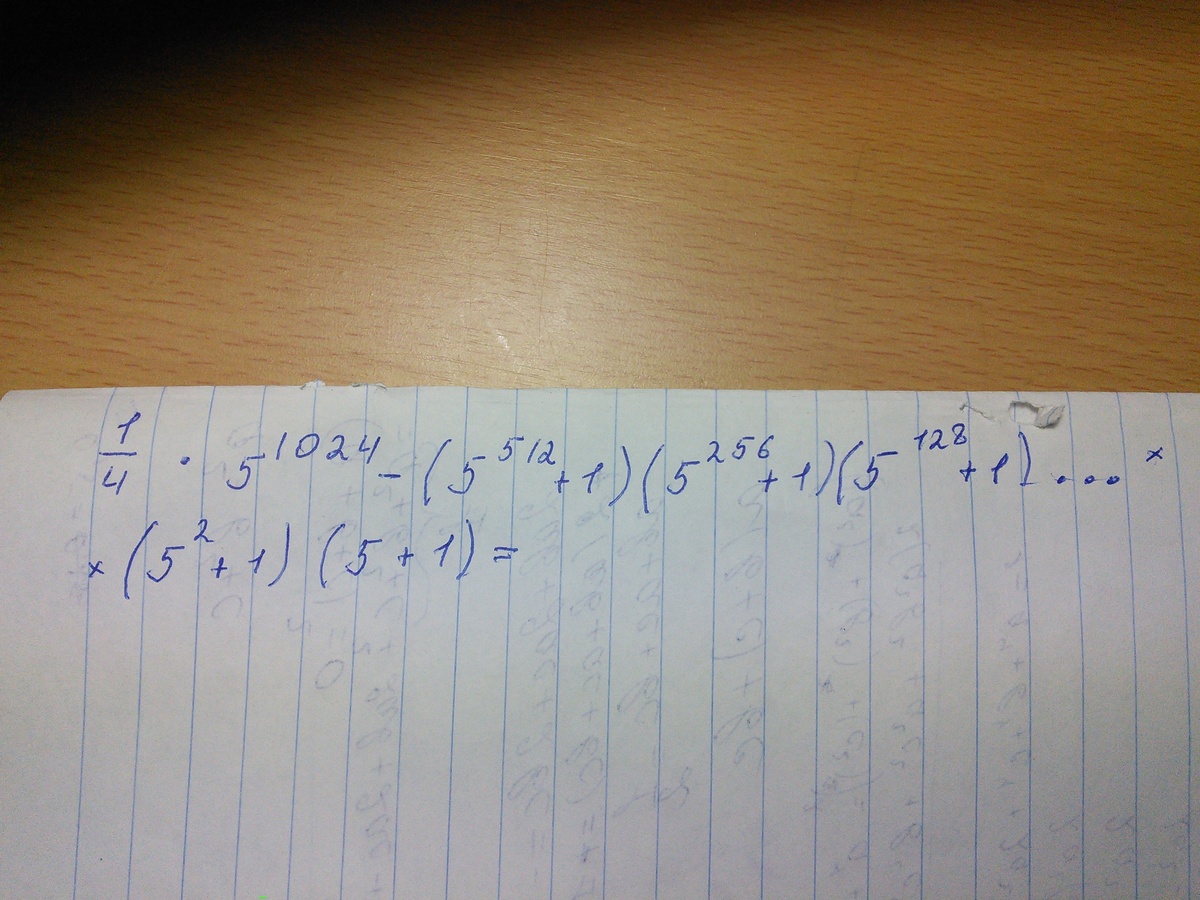 1/4 · 5^1024 - (5^512 + 1)(5^256 + 1)(5^128 + 1) ... ×
× (5^2 + 1) (5 + 1) =